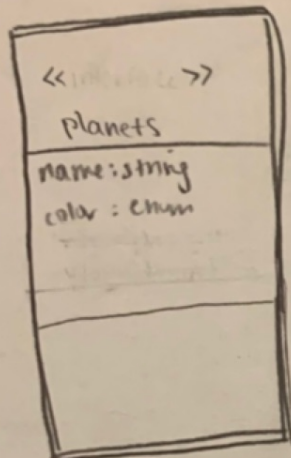 << >>
planets
name: string
color: enum